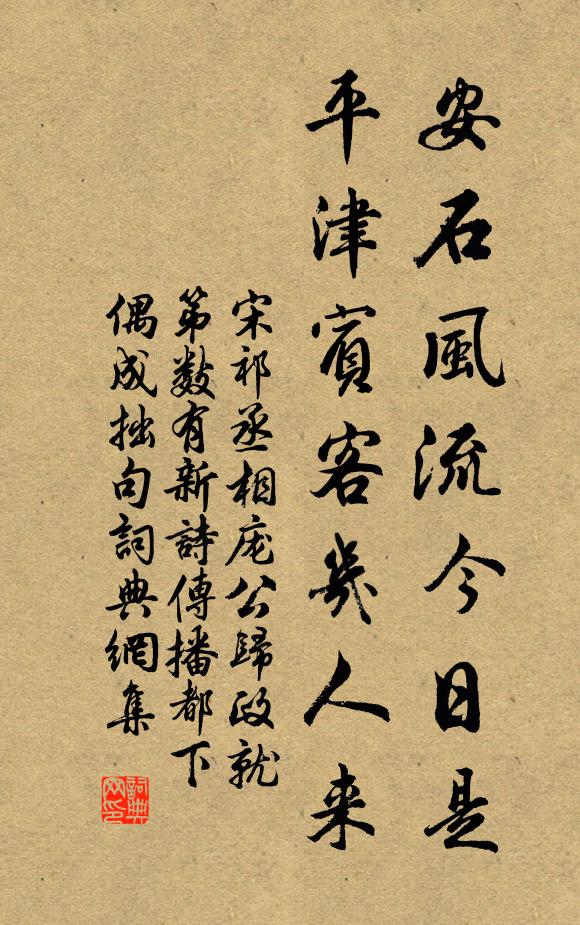 安石風流今日是
平津賓客幾人来
宋祁丞相庞公歸政就
第數有新詩傳播都下
偶成拙句詞典網集
詞典网印